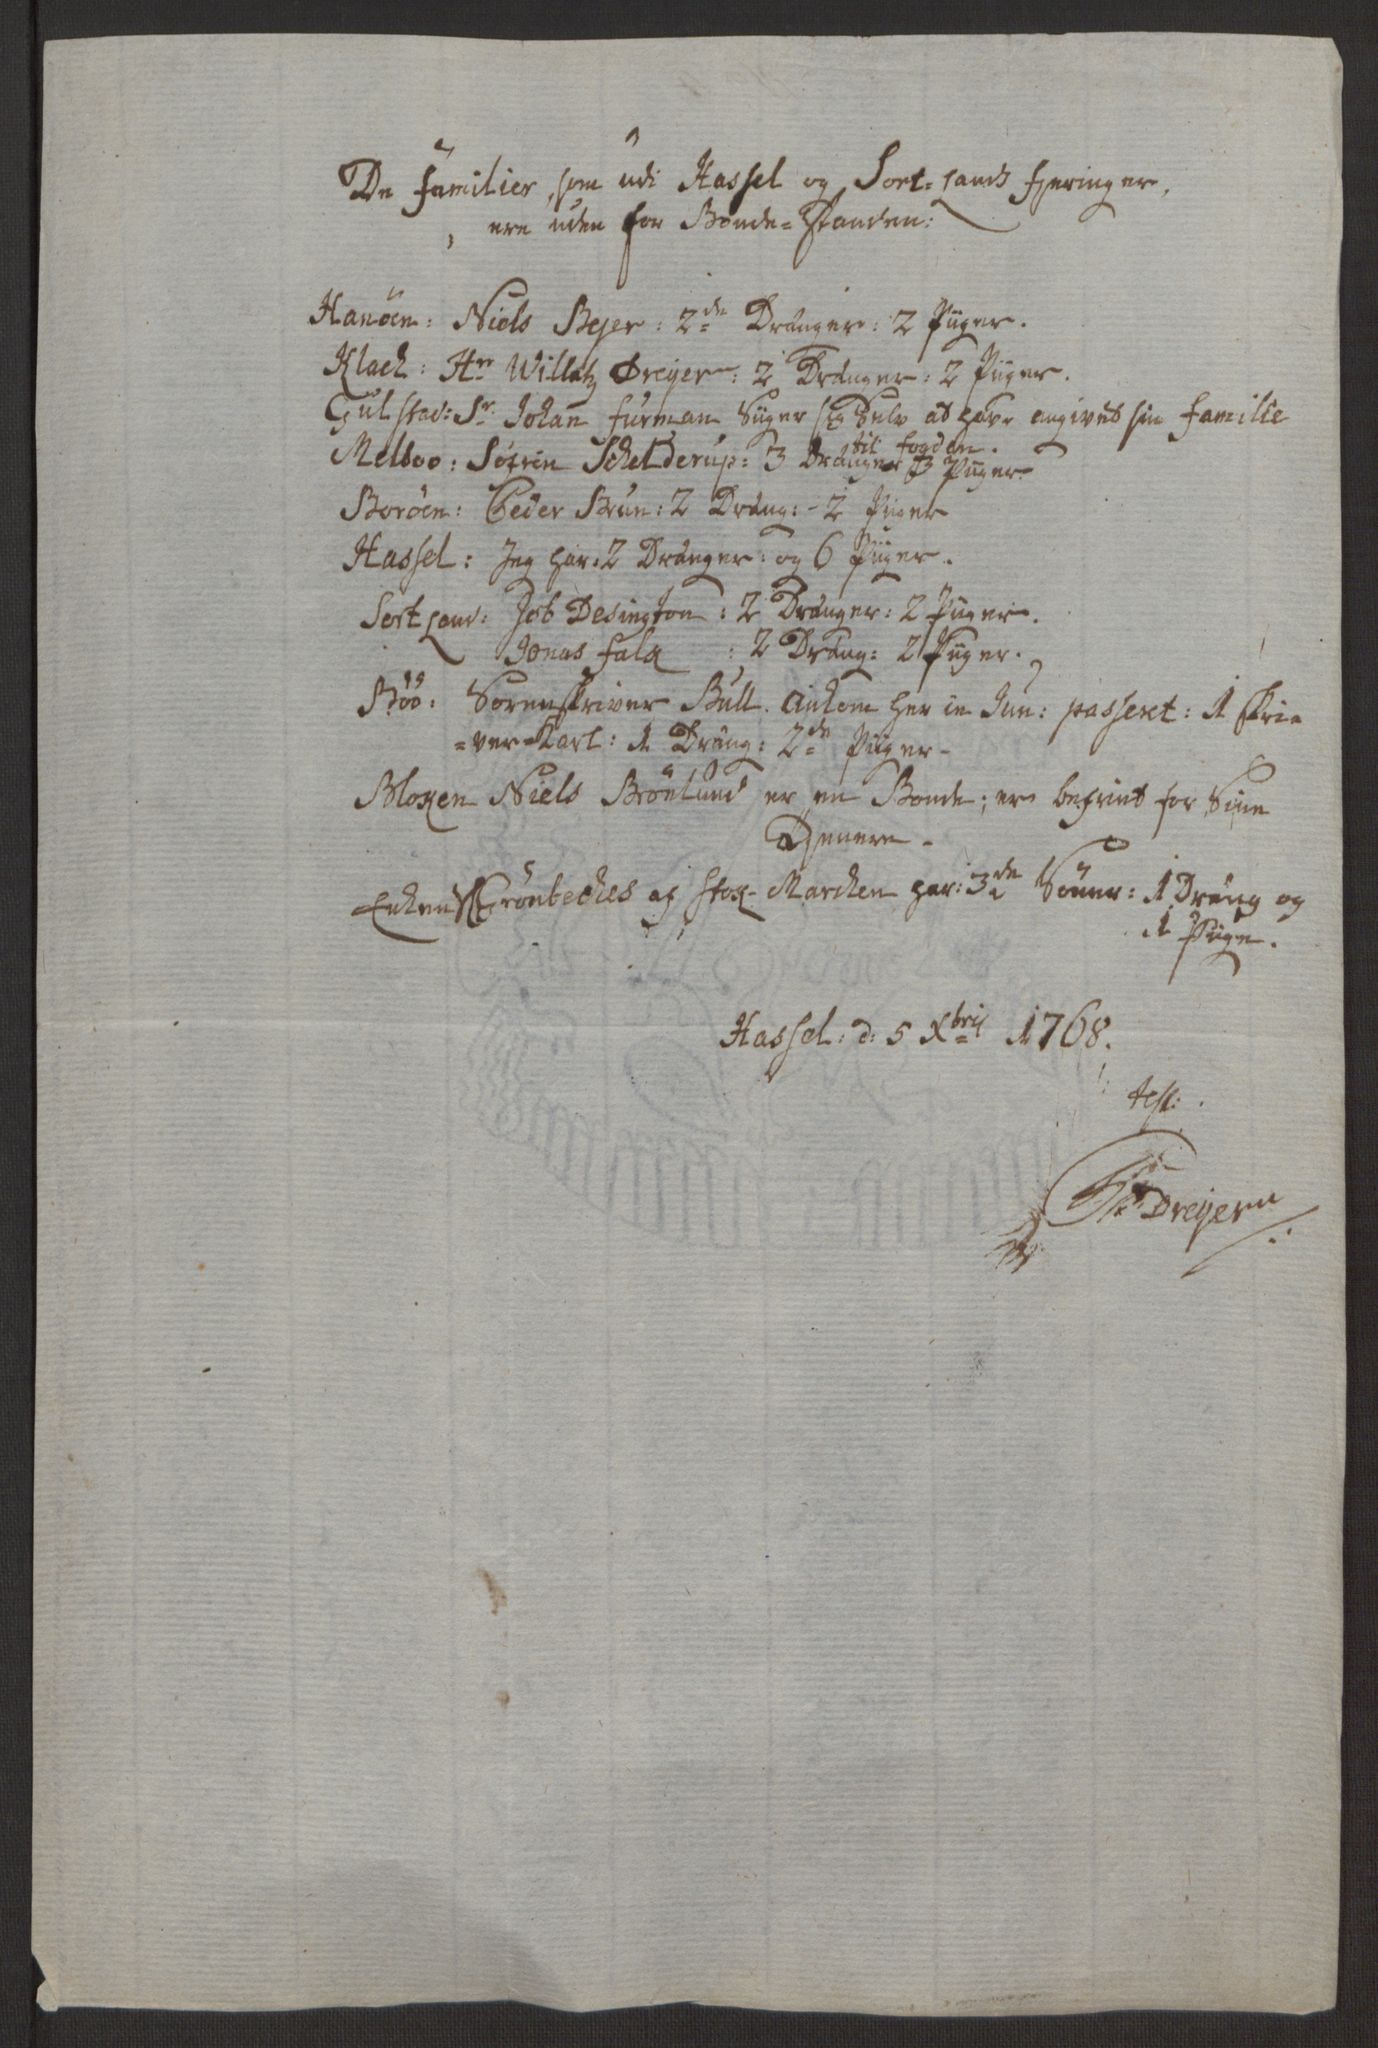 De Familier, som udi Hassel og Sort-Lands Fjeringer,
ere uden for Bonde-Standen:
Hanöen: Niels Bejer: 2de Drænger: 2 Piiger.
Klach: Hr Willatz Dreyer: 2 Drænger: 2 Piiger.
Gulstad: Sr. Johan Furman Siiger sig Selv at have angivet sin Familie
til Fogden.
Melboo: Söfren Schelderup: 3 Drænger 3 Piiger.
Boröen: Peder Brun: 2 Dræng: 2 Piiger
Hassel: Jeg har: 2 Drænger: og 6 Piiger.
Sortland: Job Desington: 2 Drænger: 2 Piiger.
Jonas Falch: 2 Dræng: 2 Piiger.
Böö: Sorenskriver Bull. Ankom her in Jun: passeret: 1 Skri=
=ver-Karl: 1 Dræng: 2de Piiger-
Bloxen Niels Brönlund er en Bonde; er befriet for Sine
Tjenere-
Enken Grönbeches af Stox-Marchen har: 3de Sönner: 1 Dræng og
1 Piige.
Hassel: d: 5 Xbris 1768.
test:
Dreyer